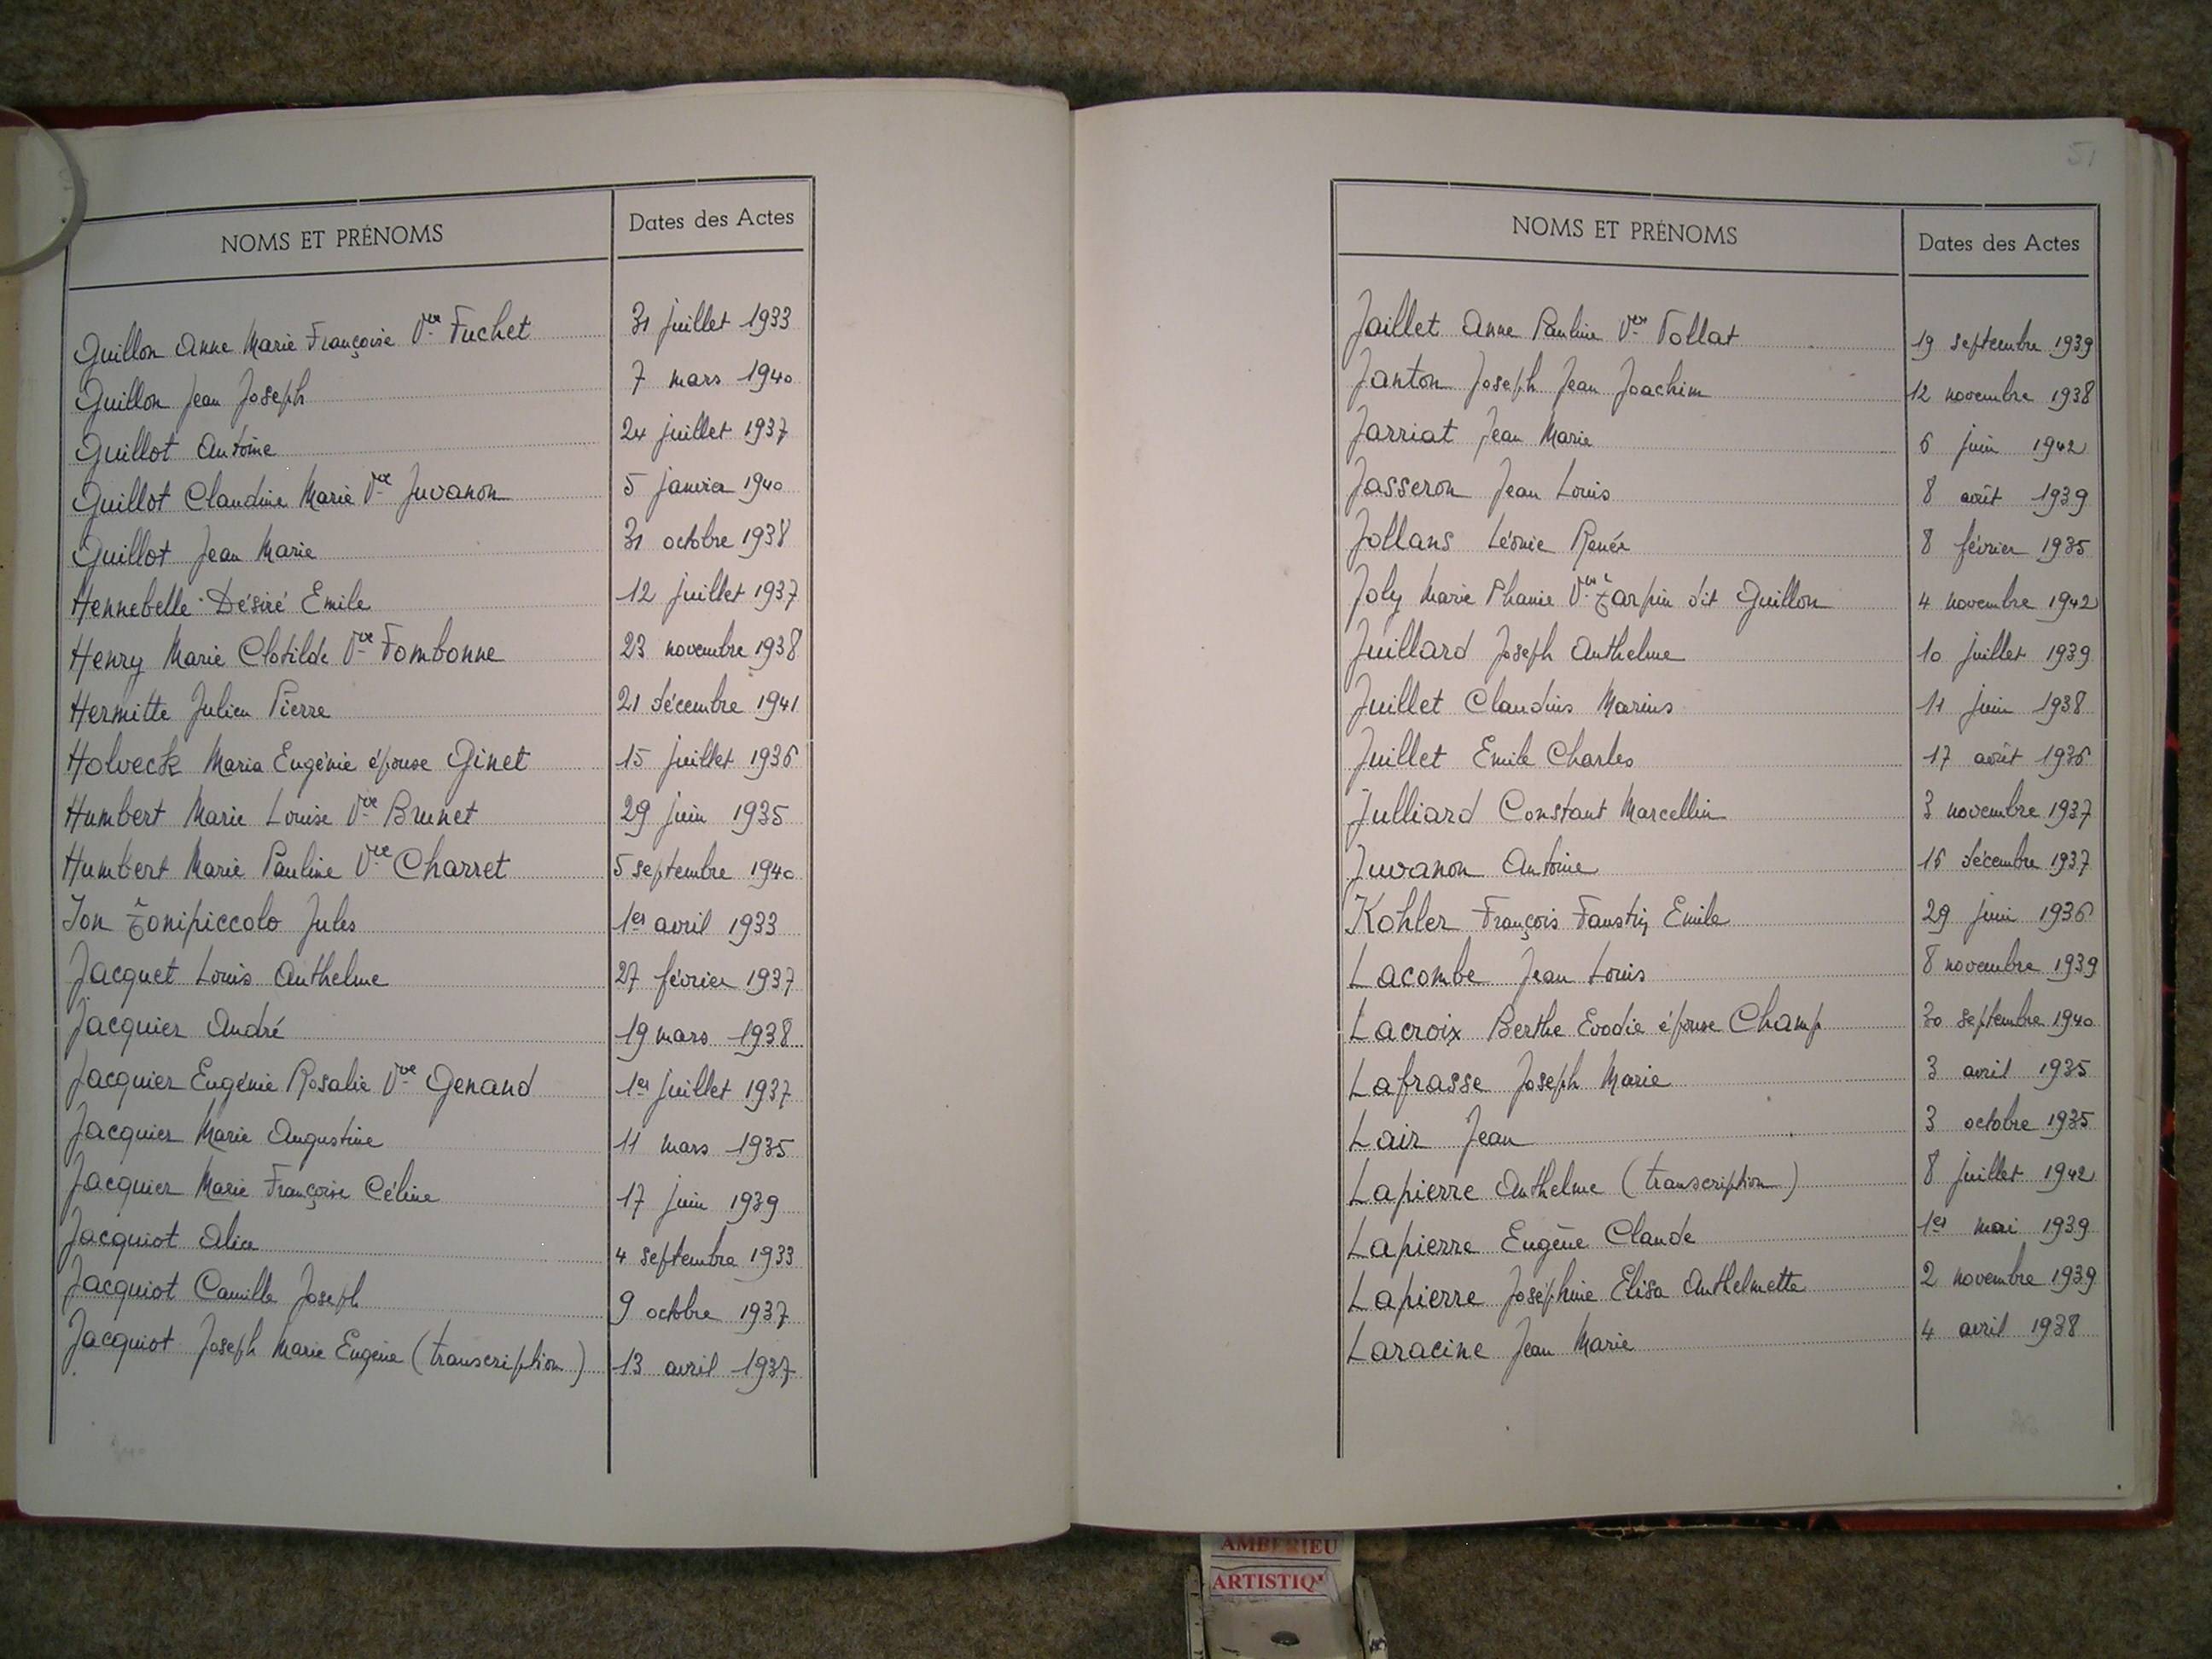 NOMS ET PRÉNOMS Dates des Actes
Guillon Anne Marie Françoise Vve Fuchet 31 juillet 1933
Guillon Jean Joseph 7 mars 1940
Guillot Antoine 24 juillet 1937
Guillot Claudine Marie Vve Juvanon 5 janvier 1940
Guillot Jean Marie 31 octobre 1938
Hennebelle Désiré Emile 12 juillet 1937
Henry Marie Clotilde Vve Fombonne 23 novembre 1938
Hermitte Julien Pierre 21 décembre 1941
Holveck Maria Eugénie épouse Ginet 15 juillet 1936
Humbert Marie Louise Vve Brunet 29 juin 1935
Humbert Marie Pauline Vve Charret 5 septembre 1940
Ion Tonipiccolo Jules 1er avril 1933
Jacquet Louis Anthelme 27 février 1937
Jacquier André 19 mars 1938
Jacquier Eugénie Rosalie Vve Genand 1er juillet 1937
Jacquier Marie Augustine 11 mars 1935
Jacquier Marie Françoise Céline 17 juin 1939
Jacquiot Alice 4 septembre 1933
Jacquiot Camille Joseph 9 octobre 1937
Jacquiot Joseph Marie Eugène (transcription) 13 avril 1937
51
NOMS ET PRÉNOMS Dates des Actes
Jaillet Anne Pauline Vve Tollat 19 septembre 1939
Janton Joseph Jean Joachim 12 novembre 1938
Jarriat Jean Marie 6 juin 1942
Jasseron Jean Louis 8 août 1939
Jollans Léonie Renée 8 février 1935
Joly Marie Phanie Vve Tarpin dit Guillon 4 novembre 1942
Juillard Joseph Anthelme 10 juillet 1939
Juillet Claudius Marius 11 juin 1938
Juillet Emile Charles 17 août 1936
Julliard Constant Marcellin 3 novembre 1937
Juvanon Antoine 16 décembre 1937
Kohler François Faustin Emile 29 juin 1936
Lacombe Jean Louis 8 novembre 1939
Lacroix Berthe Evodie épouse Champ 30 septembre 1940
Lafrasse Joseph Marie 3 avril 1935
Lair Jean 3 octobre 1935
Lapierre Anthelme (transcription) 8 juillet 1942
Lapierre Eugène Claude 1er mai 1939
Lapierre Joséphine Elisa Anthelmette 2 novembre 1939
Laracine Jean Marie 4 avril 1938
AMBERIEU
ARTISTIQ